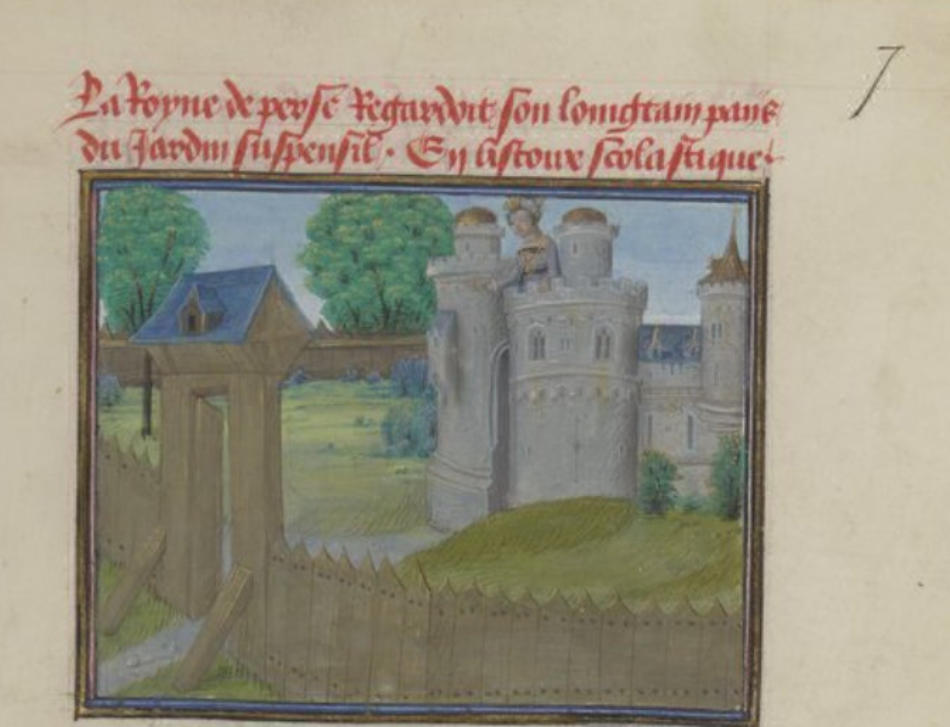 La Royne de perse Regardoit son loingtain pays
du Jardin suspensil · En listoire scolastique
7